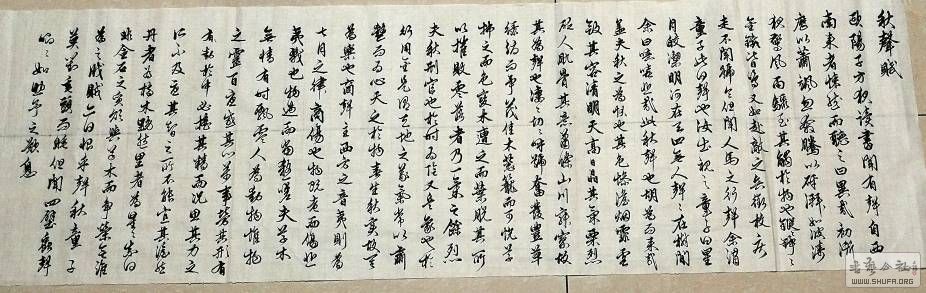 秋聲賦
歐陽子方夜讀書聞有聲自西
南来者悚然而聽之曰異哉初淅
瀝以蕭颯忽奔騰以砰湃如波濤
夜驚風雨驟至其觸於物也鏦鏦〻
金鐵皆鳴又如赴敵之兵銜枚疾
走不聞號令但聞人馬之行聲余謂
童子此何聲也汝出視之童子曰星
月皎潔明河在天四無人聲〻在樹間
余曰噫嘻悲哉此秋聲也胡為而来哉
蓋夫秋之為狀也其色慘淡煙霏雲
斂其容清明天高日晶其氣栗烈
砭人肌骨其意蕭條山川寂寥故
其為聲也淒〻切〻呼號奮發豐草
綠縟而爭茂佳木蔥籠而可悅草
拂之而色變木遭之而葉脫其所
以摧敗零落者乃一氣之餘烈
夫秋刑官也於時為陰又兵象也於
行用金是謂天地之義氣常以肅
殺而為心天之於物春生秋實故其
在樂也商聲主西方之音夷則為
七月之律商傷也物既老而傷悲
夷戮也物過而當殺嗟夫草木
無情有時飄零人為動物惟物
之靈百憂感其心萬事勞其形有
動於中必搖其精而況思其力之
所不及憂其智之所不能宜其渥然
丹者為槁木黟然黑者為星〻奈何
非金石之質欲與草木而爭榮念誰
為之戕賊亦何恨乎聲秋童子
莫對垂頭而睡但聞四壁蟲聲
唧〻如助予之歎息
书艺公社
WWW.SHUFA.ORG